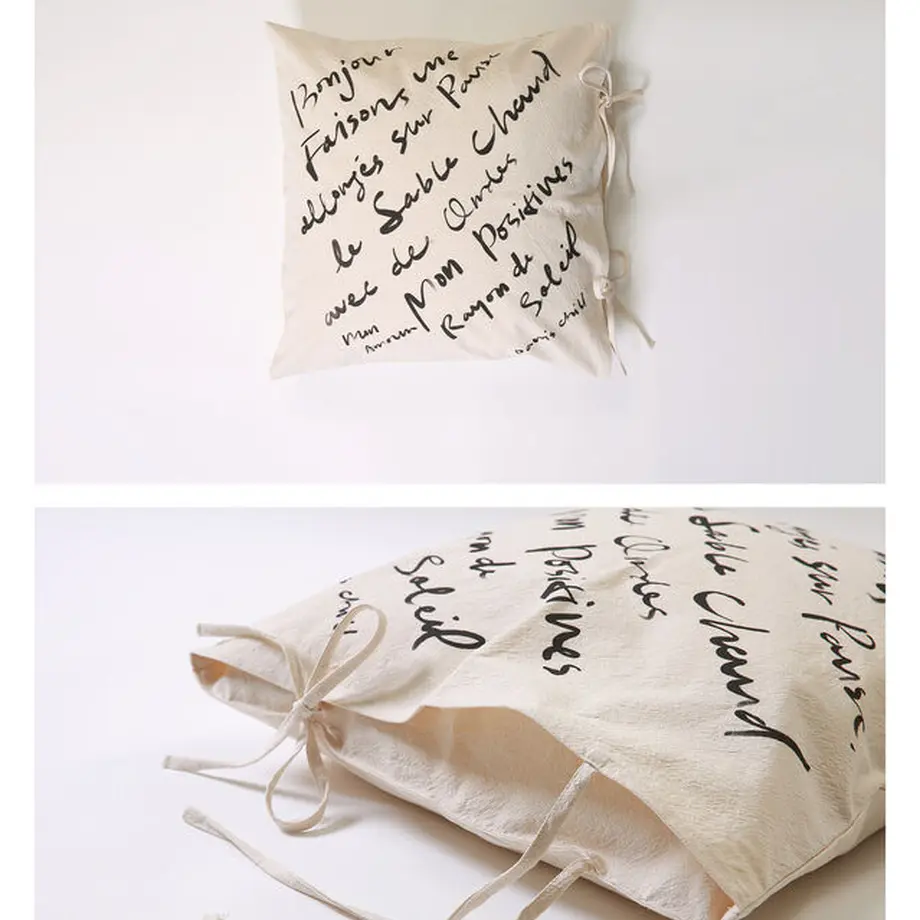 Bonjour
Faisons une
allongés sur Pause
le Sable Chaud
avec de Ondes
Mon Positives
Mon Rayon de
Amour Soleil
chill
on de
Soleil
Positives
Ondes
Sable Chaud
sur Pause.